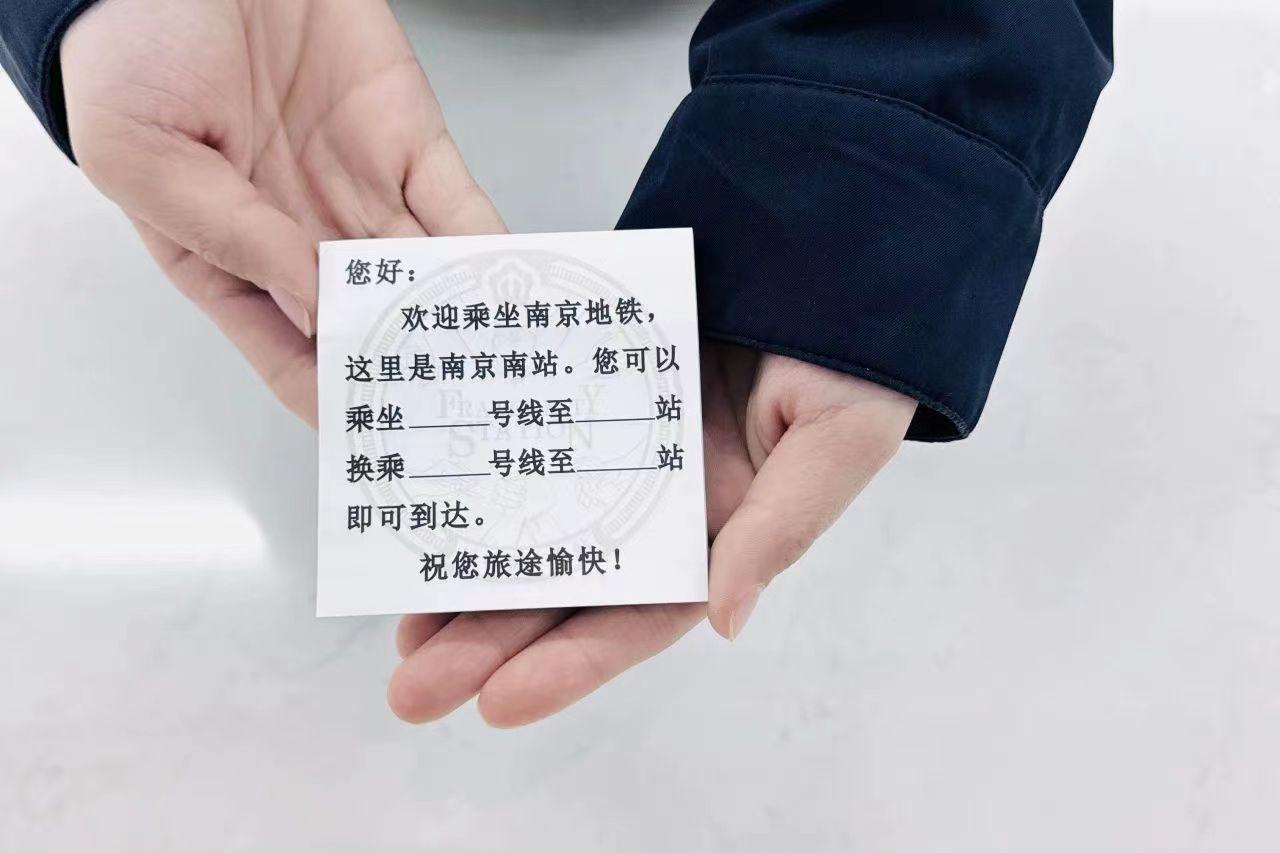 您好：
欢迎乘坐南京地铁，
这里是南京南站。您可以
乘坐_____号线至_____站
换乘_____号线至_____站
即可到达。
祝您旅途愉快！
STATION